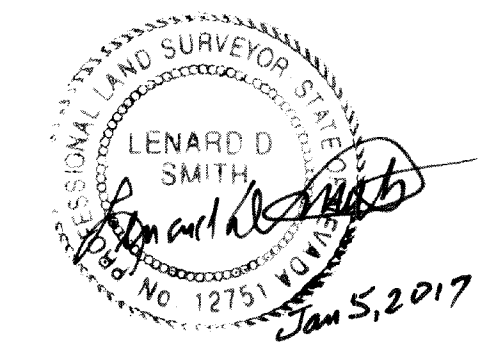 PROFESSIONAL LAND SURVEYOR STATE OF NEVADA
LENARD D
SMITH
Lenard D Smith
No. 12751
Jan 5, 2017